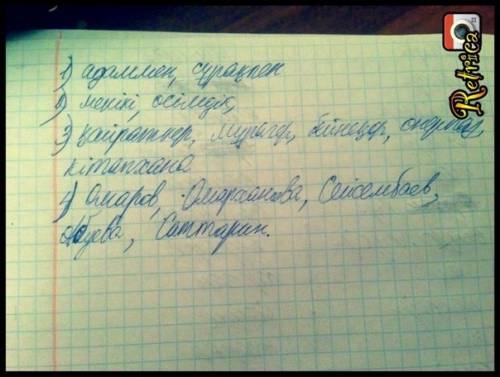 1) адаммен, сұрақпен
2) менікі, өсімдік,
3) қайраткер, мұрагер, бейнеқор, өнерпаз,
кітапхана
4) Омаров, Омарханова, Сейсембаев,
Абуева, Саттарин.
Retrica